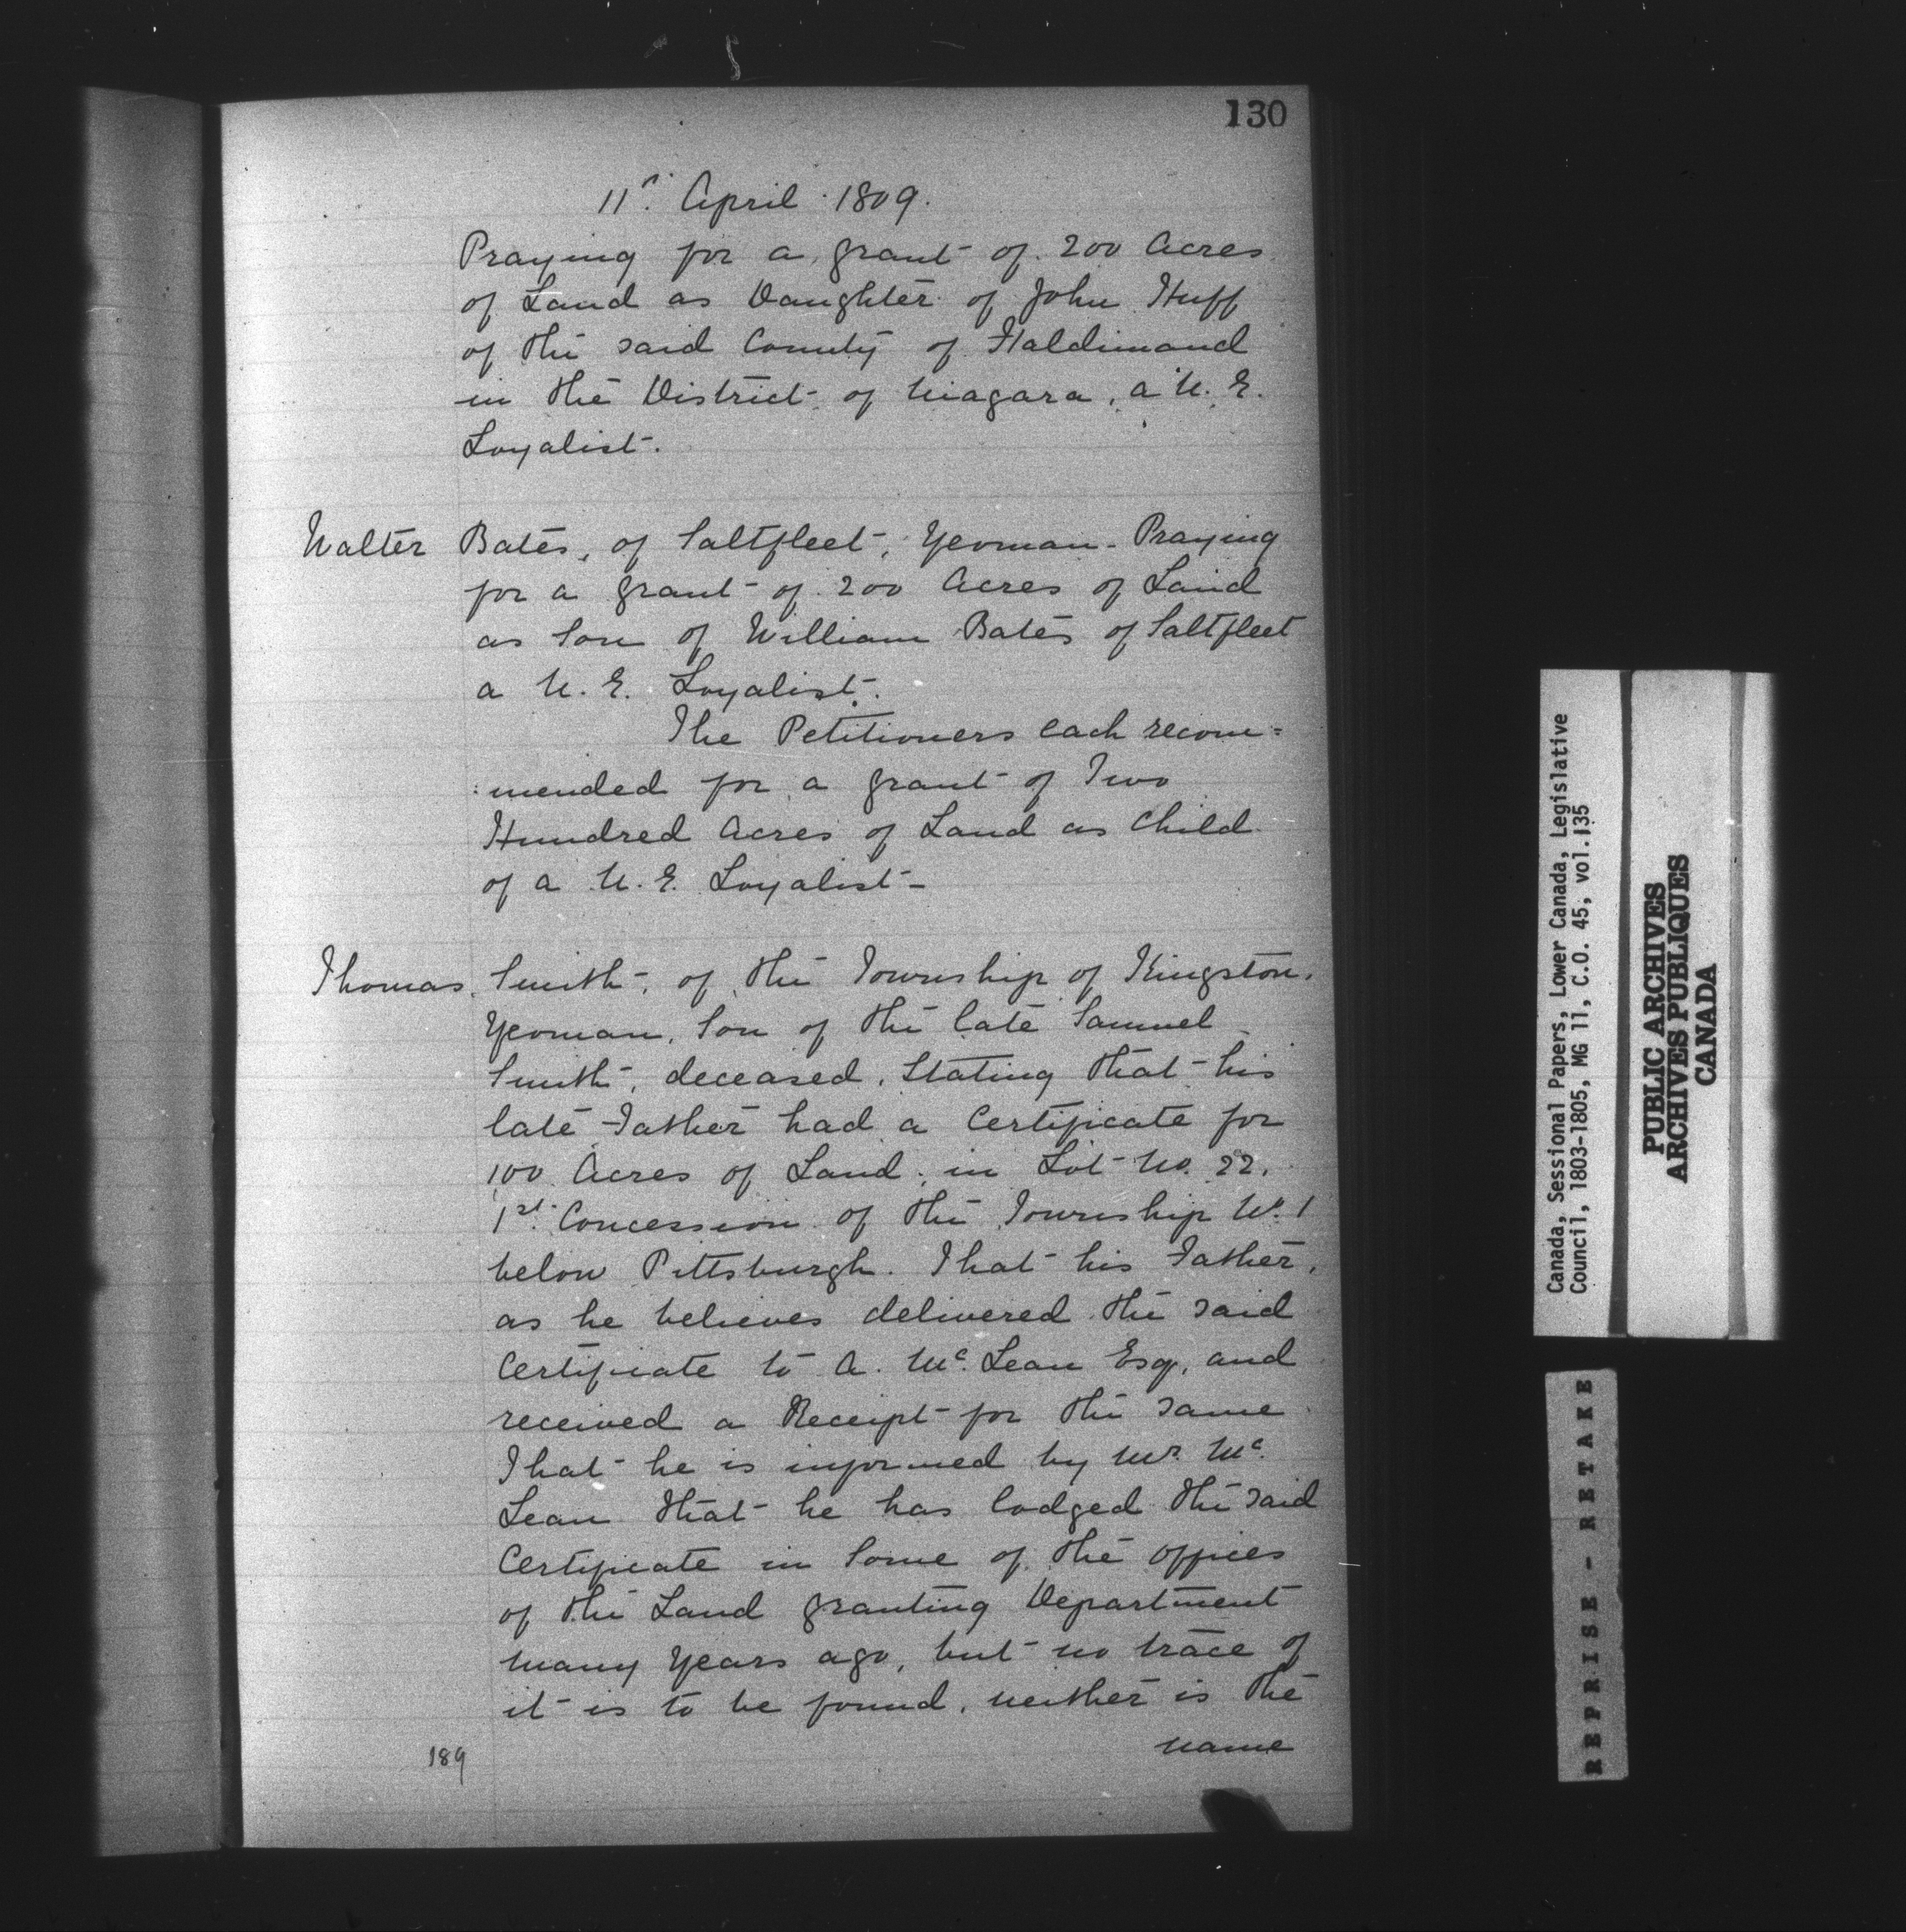 130
11th. April 1809.
Praying for a grant of 200 Acres
of Land as Daughter of John Huff
of the said County of Haldimand
in the District of Niagara, a U. E.
Loyalist.
Walter Bates, of Saltfleet, Yeoman. Praying
for a grant of 200 Acres of Land
as Son of William Bates of Saltfleet
a U. E. Loyalist.
The Petitioners each recom=
:mended for a grant of Two
Hundred Acres of Land as Child
of a U. E. Loyalist.
Thomas Smith, of the Township of Kingston.
Yeoman, Son of the late Samuel
Smith, deceased, Stating that his
late Father had a Certificate for
100 Acres of Land, in Lot No. 22.
1st. Concession of the Township No. 1
below Pittsburgh. That his Father,
as he believes delivered the said
Certificate to A. Mc. Lean Esq, and
received a Receipt for the same
That he is informed by Mr. Mc.
Lean that he has lodged the said
Certificate in Some of the offices
of the Land granting Department
many Years ago, but no trace of
it is to be found, neither is the
name
189
Canada, Sessional Papers, Lower Canada, Legislative
Council, 1803-1805, MG 11, C.O. 45, vol.135
PUBLIC ARCHIVES
ARCHIVES PUBLIQUES
CANADA
REPRISE - RETAKE